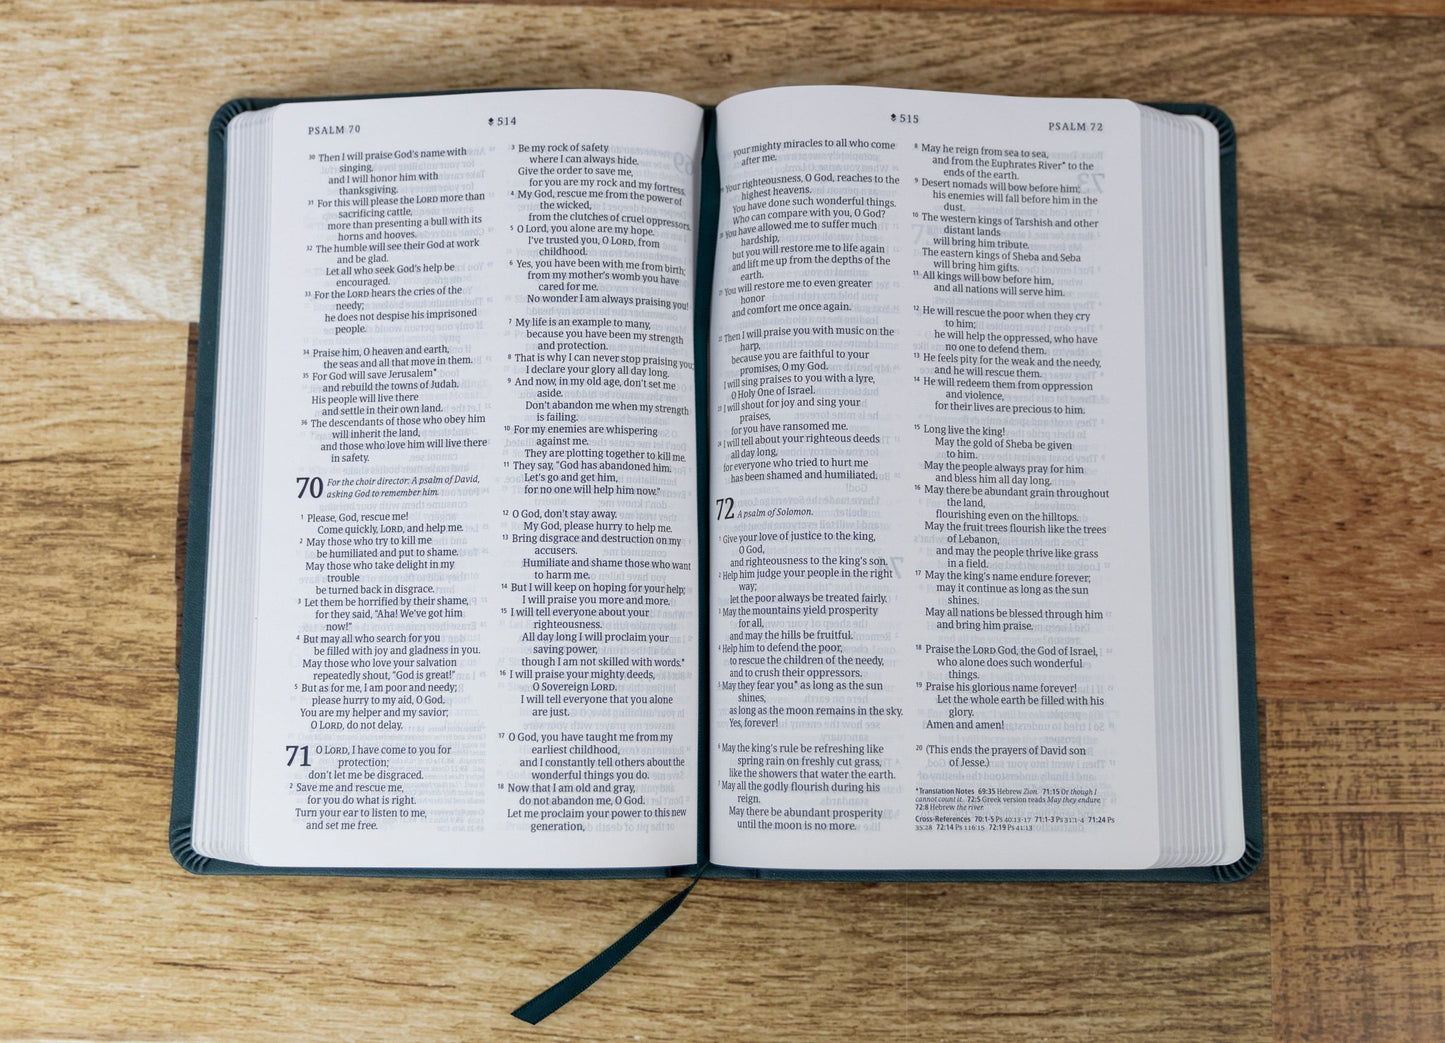 PSALM 70
514
30 Then I will praise God's name with
singing,
and I will honor him with
thanksgiving.
31 For this will please the LORD more than
sacrificing cattle,
more than presenting a bull with its
horns and hooves.
32 The humble will see their God at work
and be glad.
Let all who seek God's help be
encouraged.
33 For the LORD hears the cries of the
needy;
he does not despise his imprisoned
people.
34 Praise him, O heaven and earth,
the seas and all that move in them.
35 For God will save Jerusalem*
and rebuild the towns of Judah.
His people will live there
and settle in their own land.
36 The descendants of those who obey him
will inherit the land,
and those who love him will live there
in safety.
70 For the choir director: A psalm of David,
asking God to remember him.
1 Please, God, rescue me!
Come quickly, LORD, and help me.
2 May those who try to kill me
be humiliated and put to shame.
May those who take delight in my
trouble
be turned back in disgrace.
3 Let them be horrified by their shame,
for they said, "Aha! We've got him
now!"
4 But may all who search for you
be filled with joy and gladness in you.
May those who love your salvation
repeatedly shout, "God is great!"
5 But as for me, I am poor and needy;
please hurry to my aid, O God.
You are my helper and my savior;
O LORD, do not delay.
71 O LORD, I have come to you for
protection;
don't let me be disgraced.
2 Save me and rescue me,
for you do what is right.
Turn your ear to listen to me,
and set me free.
3 Be my rock of safety
where I can always hide.
Give the order to save me,
for you are my rock and my fortress.
4 My God, rescue me from the power of
the wicked,
from the clutches of cruel oppressors.
5 O Lord, you alone are my hope.
I've trusted you, O LORD, from
childhood.
6 Yes, you have been with me from birth;
from my mother's womb you have
cared for me.
No wonder I am always praising you!
7 My life is an example to many,
because you have been my strength
and protection.
8 That is why I can never stop praising you;
I declare your glory all day long.
9 And now, in my old age, don't set me
aside.
Don't abandon me when my strength
is failing.
10 For my enemies are whispering
against me.
They are plotting together to kill me.
11 They say, "God has abandoned him.
Let's go and get him,
for no one will help him now."
12 O God, don't stay away.
My God, please hurry to help me.
13 Bring disgrace and destruction on my
accusers.
Humiliate and shame those who want
to harm me.
14 But I will keep on hoping for your help;
I will praise you more and more.
15 I will tell everyone about your
righteousness.
All day long I will proclaim your
saving power,
though I am not skilled with words.*
16 I will praise your mighty deeds,
O Sovereign LORD.
I will tell everyone that you alone
are just.
17 O God, you have taught me from my
earliest childhood,
and I constantly tell others about the
wonderful things you do.
18 Now that I am old and gray,
do not abandon me, O God.
Let me proclaim your power to this new
generation,
515
PSALM 72
your mighty miracles to all who come
after me.
Your righteousness, O God, reaches to the
highest heavens.
You have done such wonderful things.
Who can compare with you, O God?
You have allowed me to suffer much
hardship,
but you will restore me to life again
and lift me up from the depths of the
earth.
You will restore me to even greater
honor
and comfort me once again.
Then I will praise you with music on the
harp,
because you are faithful to your
promises, O my God.
I will sing praises to you with a lyre,
O Holy One of Israel.
I will shout for joy and sing your
praises,
for you have ransomed me.
24 I will tell about your righteous deeds
all day long,
for everyone who tried to hurt me
has been shamed and humiliated.
72 A psalm of Solomon.
1 Give your love of justice to the king,
O God,
and righteousness to the king's son.
2 Help him judge your people in the right
way;
let the poor always be treated fairly.
3 May the mountains yield prosperity
for all,
and may the hills be fruitful.
4 Help him to defend the poor,
to rescue the children of the needy,
and to crush their oppressors.
5 May they fear you* as long as the sun
shines,
as long as the moon remains in the sky.
Yes, forever!
6 May the king's rule be refreshing like
spring rain on freshly cut grass,
like the showers that water the earth.
7 May all the godly flourish during his
reign.
May there be abundant prosperity
until the moon is no more.
8 May he reign from sea to sea,
and from the Euphrates River* to the
ends of the earth.
9 Desert nomads will bow before him;
his enemies will fall before him in the
dust.
10 The western kings of Tarshish and other
distant lands
will bring him tribute.
The eastern kings of Sheba and Seba
will bring him gifts.
11 All kings will bow before him,
and all nations will serve him.
12 He will rescue the poor when they cry
to him;
he will help the oppressed, who have
no one to defend them.
13 He feels pity for the weak and the needy,
and he will rescue them.
14 He will redeem them from oppression
and violence,
for their lives are precious to him.
15 Long live the king!
May the gold of Sheba be given
to him.
May the people always pray for him
and bless him all day long.
16 May there be abundant grain throughout
the land,
flourishing even on the hilltops.
May the fruit trees flourish like the trees
of Lebanon,
and may the people thrive like grass
in a field.
17 May the king's name endure forever;
may it continue as long as the sun
shines.
May all nations be blessed through him
and bring him praise.
18 Praise the LORD God, the God of Israel,
who alone does such wonderful
things.
19 Praise his glorious name forever!
Let the whole earth be filled with his
glory.
Amen and amen!
20 (This ends the prayers of David son
of Jesse.)
*Translation Notes 69:35 Hebrew Zion. 71:15 Or though I
cannot count it. 72:5 Greek version reads May they endure.
72:8 Hebrew the river.
Cross-References 70:1-5 Ps 40:13-17 71:1-3 Ps 31:1-4 71:24 Ps
35:28 72:14 Ps 116:15 72:19 Ps 41:13